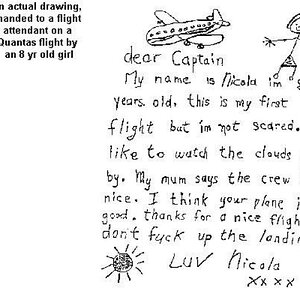 n actual drawing,
handed to a flight
attendant on a
Quantas flight by
an 8 yr old girl
dear Captain
My name is Nicola im
years old, this is my first
flight but im not scared.
like to watch the clouds
by. My mum says the crew
nice. I think your plane i
good. thanks for a nice fligh
don't fuck up the landin
LUV Nicola
xxxx